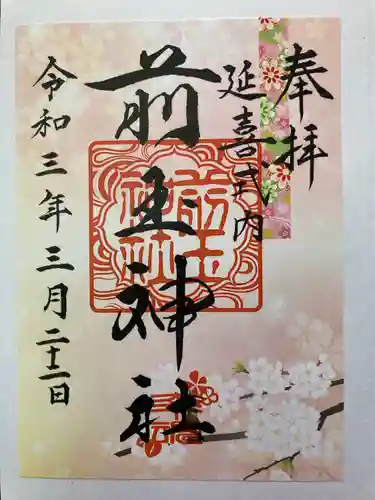 奉拝
延喜式内
前玉神社
前玉神社
令和三年三月二十二日